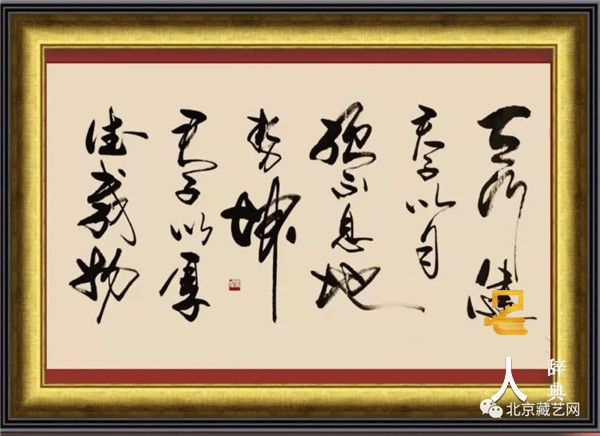 天行健
君子以自
强不息地
势坤
君子以厚
德载物
名人
辞典
北京藏艺网